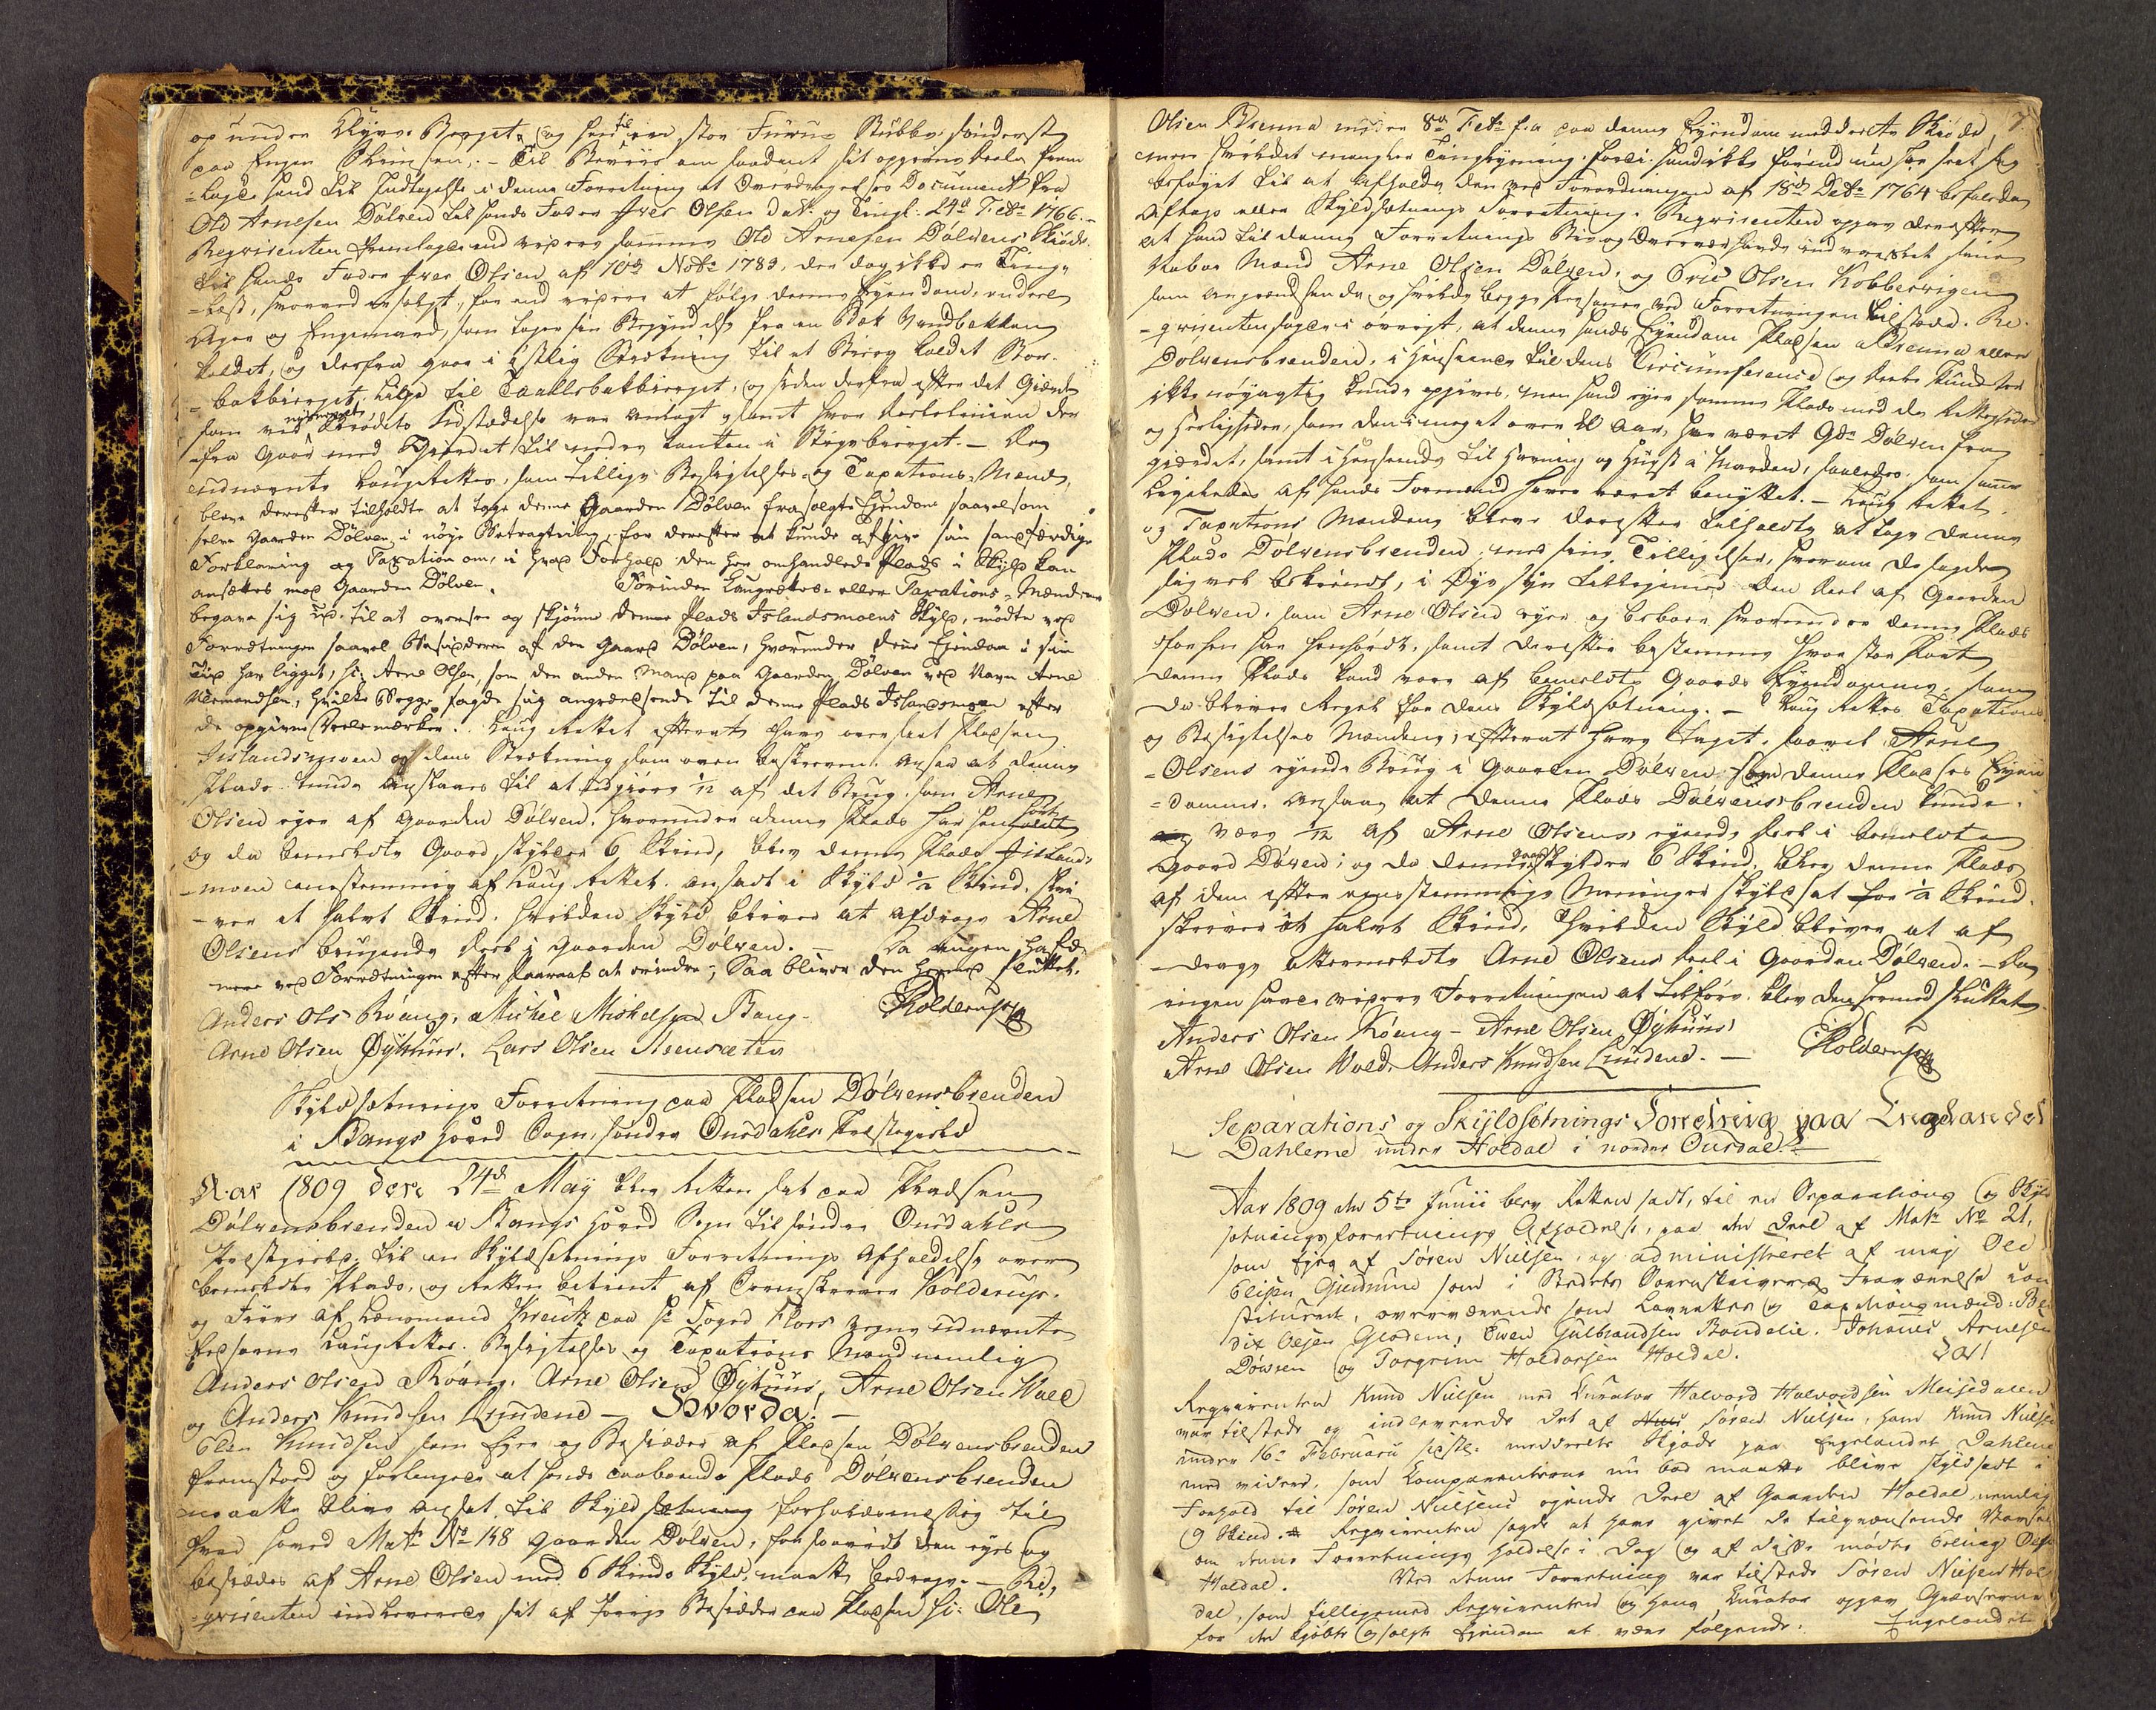 op under Dyve Berget, og hen til en stor Furue Stubbe sönderst
paa Engen . – Til Beviis om saadant sit opgivne Deele frem
=lagde hand til Indtagelse i denne Forretning et Overdragelses Document fra
Old Arnesen Dölven til hands Fader Iver Olsen dat. og Tingl. 24d Febr 1766. –
Reqvirenten fremlagde end videre samme Old Arnesen Dölvens Skiöde
til hands Fader Iver Olsen af 10d Novbr 1783. den dag ikke er Ting-
=læst, hvorved er solgt, for end videre at følge denne Eyendom, endeel
Ager og Engemand, som tager sin Begyndelse fra en Bek Vandbekken
kaldet, og derfra gaar i östlig Strekning til et Bierg kaldet Stor-
=bakbierget, lige til Taallsbakbierget, og siden derfra efter det Gierde
som ved nysnevnte Skiödets Udstædelse var anlagt, samt hvor deelelinien der
-fra gaar med Gierdet til nedre kanten i Stygebierget. – De
udnævnte Laugrettes, som tillige Besigtelses- og Taxations-Mænd,
bleve derefter tilholdte at tage denne Gaarden Dölven frasolgte Ejendom saavelsom
selve Gaarden Dölven, i nöye Betragtning, for derefter at kunde afgive sin samfærdige
Forklaring og Taxation om, i hvad Forhold den her omhandlede Plads i Skyld kan
ansættes mod Gaarden Dölven. Forinden Laugrettes- eller Taxations-Mændene
begave sig ud til at overse og skjönne denne Plads Islandsmoens Skyld, mödte ved
Forretningen saavel Besidderen af den Gaard Dölven, hvorunder denne Ejendom i sin
Tiid har ligget, hr: Arne Olsen, som den anden Mand paa Gaarden Dölven ved Navn Arne
Aamondsen, hvilke Begge sagde sig angrændsende til denne Plads Islandsmoen efter
de opgivne Deelesmærker. Laug Rettet efterat have overseet Pladsen
Islandsmoen og dens Strekning som oven beskreven. ansaa at denne
Plads kunde anslaaes til at udgiöre 1/12 af det Brug. som Arne
Olsen eyer af Gaarden Dölven. hvorunder denne Plads har henhört
og da bemeldte Gaard skylder 6 Skind, blev denne Plads Iisland-
-moen eenstemmig af Laug Rettet. ansadt i Skyld ½ Skind. skri-
-ver et halvt Skind. hvilken Skyld bliver at afdrage Arne
Olsens brugende deel i Gaarden Dölven. – Da ingen havde
mere ved Forretningen efter Paaraab at erindre; Saa bliver den hermed sluttet.
Anders Ols Röang, Mickel Mickelsen Bang. Kolderup
Arne Olsen Øyhuus. Lars Olsen Steensæter
Skyldsetnings Forretning paa Pladsen Dölvensbrenden
i Bangs hoved Sogn, söndre Ourdahls Præstegield
Aar 1809 den 24d May blev Retten sat paa Pladsen
Dölvensbrenden i Bangs hoved Sogn til söndre Ourdahls
Præstegield. til en Skyldsetnings Forretnings Afholdelse over
bemeldte Plads, og Retten betient af Sorenskriver Kolderup.
og Tiener af Lensmand Kreutz paa hr Foged Flors vegne udnævnte
Eedsorne Laugrettes- Besigtelses og Taxations Mænd nemlig
Anders Olsen Röang. Arne Olsen Øyhuus, Arne Olsen Wold
og Anders Knudsen Lundene – Hvorda! –
Elen Knudsen som Eyer og Besidder af Pladsen Dölvensbrenden
fremstod og forlangte at hands eaboende Plads Dölvensbrenden
maatte blive ansat til Skyldsetning forholdsmessig til
hvad hoved Matr No 148 Gaarden Dölven, forsaavidt den eyes og
besiddes af Arne Olsen med 6 Skinds Skyld maatte bedrage. – Re-
=qvirenten indleverede sit af forrige Besidder paa Pladsen hr: Ole
7.
Olsen Brenna under 8d Febr f.a paa denne Eyendom meddeelte Skiöde,
men hvilket mangler Tinglysning, fordi hand ikke förend nu har seet sig
beföyet til at afholde den ved Forordningen af 18d Decbr 1764 befalede
Aftags eller Skyldsetnings Forretning. Reqvirenten opgav derefter
at hand til denne Forretnings Bie og Overvær havde indvarslet sine
Naboe Mænd Arne Olsen Dölven, og Erik Olsen Kobbervigen
som angrændsende og hvilke begge Personer ved Forretningen tilstede. Re-
-qvirenten sagde i övrigt, at denne hands Eyendom Pladsen Brenna eller
Dölvensbrenden, i Henseende til dens Circumference og deele kunde for
ikke nöyagtig kunde opgives, men hand eyer samme Plads med de Rettigheder
og herligheder, som den i meget over 20 Aar, har været Gdn Dölven fra
gierdet, samt i Henseende til havning og hugst i Marken, saaledes. som samme
ligeledes af hands Formænd have været benyttet. – Laug Rettet
og Taxations Mændene bleve derefter tilholdte at tage denne
Plads Dölvensbrenden, med sine Tilligelser, hvorom de sagde
sig vel bekiendt, i Øye syn tilligemed den deel af Gaarden
Dölven. som Arne Olsen eyer og beboer hvorunder denne Plads
forhen har henhördt. samt derefter bestemme hvor stor Part
denne Plads kand være af bemeldte Gaards Eyendomme. som
da bliver Regel for dens Skyldsetning. – Laug Rettes Taxations
og Besigtelses Mændene, efterat have taget. saavel Arne
=Olsens eyende Brug i Gaarden Dölven som denne Pladses Eyen
=domme. ansaa at denne Plads Dölvensbrenden kunde.
være 1/12 af Arne Olsens eyende deel i bemeldte
Gaard Dölven; og da denne Gaard skylder 6 Skind. blev denne Plads
af dem efter eenstemmige Meninger skyldsat for ½ Skind.
skriver et halvt Skind, hvilken Skyld bliver at af
-drage ottermeldte Arne Olsens deel i Gaarden Dölven. – Da
ingen havde videre Forretningen at tilföre. blev den hermed sluttet.
Anders Olsen Röang – Arne Olsen Øyhuus
Arne Olsen Wold. Anders Knudsen Lundene. – Kolderup
Separations og Skyldsetnings Forretning paa Engelandet
Dahlerne under Holdal i nordre Ourdal. –
Aar 1809 den 5te Junii blev Retten sadt, til en Separations og Skyld
setnings forretnings Afholdelse, paa den Deel af Matr No 21,
som ejes af Sören Nielsen, og administreret af mig Ole
Elisen Gudmund som i Stedets Sorenskrivers Fraværelse con
stitueret, overværende som Lavrettes og Taxationsmænd: Ben
dix Olsen Glodem, Even Gulbrandsen Bondelie. Johanes Arnesen
Döwsen og Torgrim Haldorsen Holdal. Da!
Reqvirenten Knud Nielsen med Curator Halvord Halvordsen Meisedalen
var tilstede og indleverede det af Sören Nielsen, ham Knud Nielsen
under 16de Februarii sidstl. meddeelte Skjöde paa Engelandet Dahlerne
med videre, som Comparenterne nu bad maatte blive skyldsadt i
Forhold til Sören Nielsens ejende Deel af Gaarden Holdal, nemlig
9 Skind. Reqvirenten sagde at have givet de tilgrændsende Varsel
om denne Forretnings holdelse i Dag og af disse mödte Erling Olsen
Holdal. Ved denne Forretning var tilstede Sören Nielsen Hol
dal, som tilligemed Reqvirenten og hans Curator opgav Grændserne
for den kjöbte og solgte Ejendom at være fölgende: Engelandet